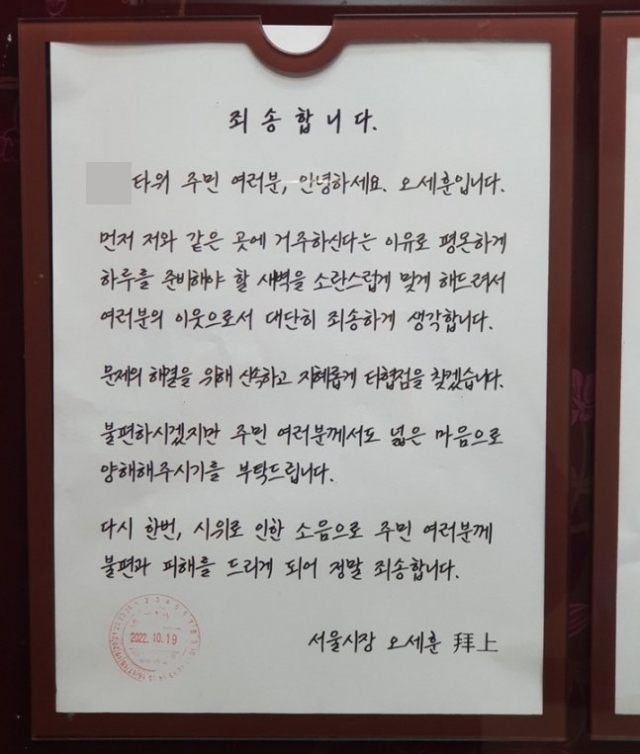 죄송합니다.
타워 주민 여러분, 안녕하세요. 오세훈입니다.
먼저 저와 같은 곳에 거주하신다는 이유로 평온하게
하루를 준비해야 할 새벽을 소란스럽게 맞게 해드려서
여러분의 이웃으로서 대단히 죄송하게 생각합니다.
문제의 해결을 위해 신속하고 지혜롭게 타협점을 찾겠습니다.
불편하시겠지만 주민 여러분께서도 넓은 마음으로
양해해주시기를 부탁드립니다.
다시 한번, 시위로 인한 소음으로 주민 여러분께
불편과 피해를 드리게 되어 정말 죄송합니다.
2022.10.19
서울시장 오세훈 拜上